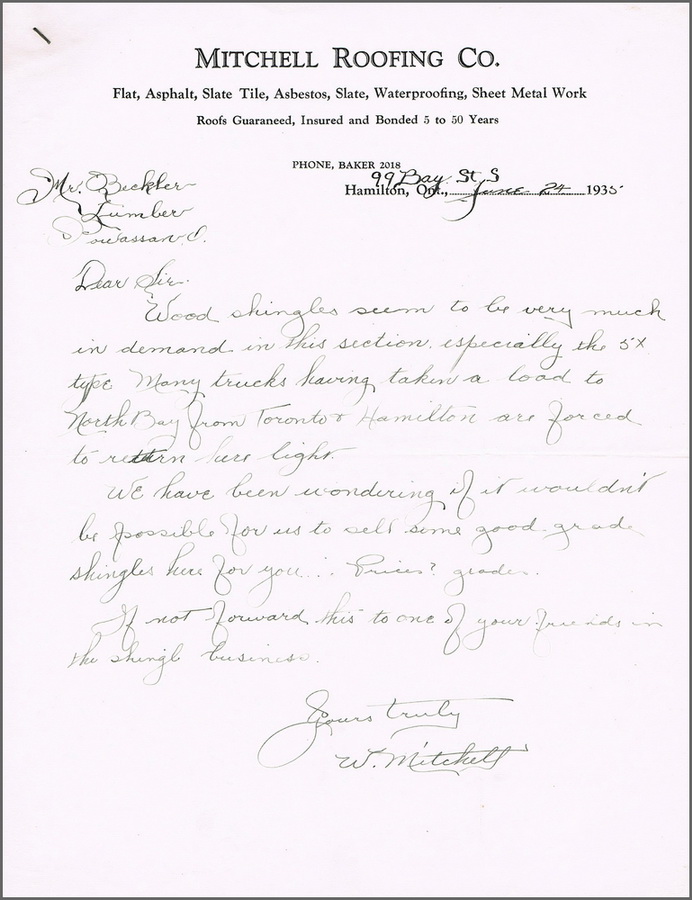 MITCHELL ROOFING CO.
Flat, Asphalt, Slate Tile, Asbestos, Slate, Waterproofing, Sheet Metal Work
Roofs Guaraneed, Insured and Bonded 5 to 50 Years
PHONE, BAKER 2018
99 Bay St. S
Hamilton, Ont., June 24 1935
Mr.
Lumber
Powassan, O.
Dear Sir.
Wood shingles seem to be very much
in demand in this section, especially the 5X
type Many trucks having taken a load to
North Bay from Toronto & Hamilton are forced
to return here light.
We have been wondering if it wouldn't
be possible for us to sell some good grade
shingles here for you... Prices? grades.
If not forward this to one of your friends in
the shingle business.
Yours truly
W. Mitchell